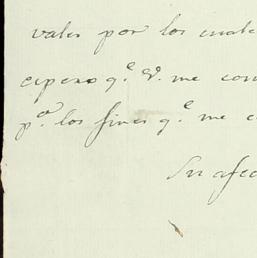 vales por los cuale
espero q.e V. me con
p.a los fines q.e me c
Su afec